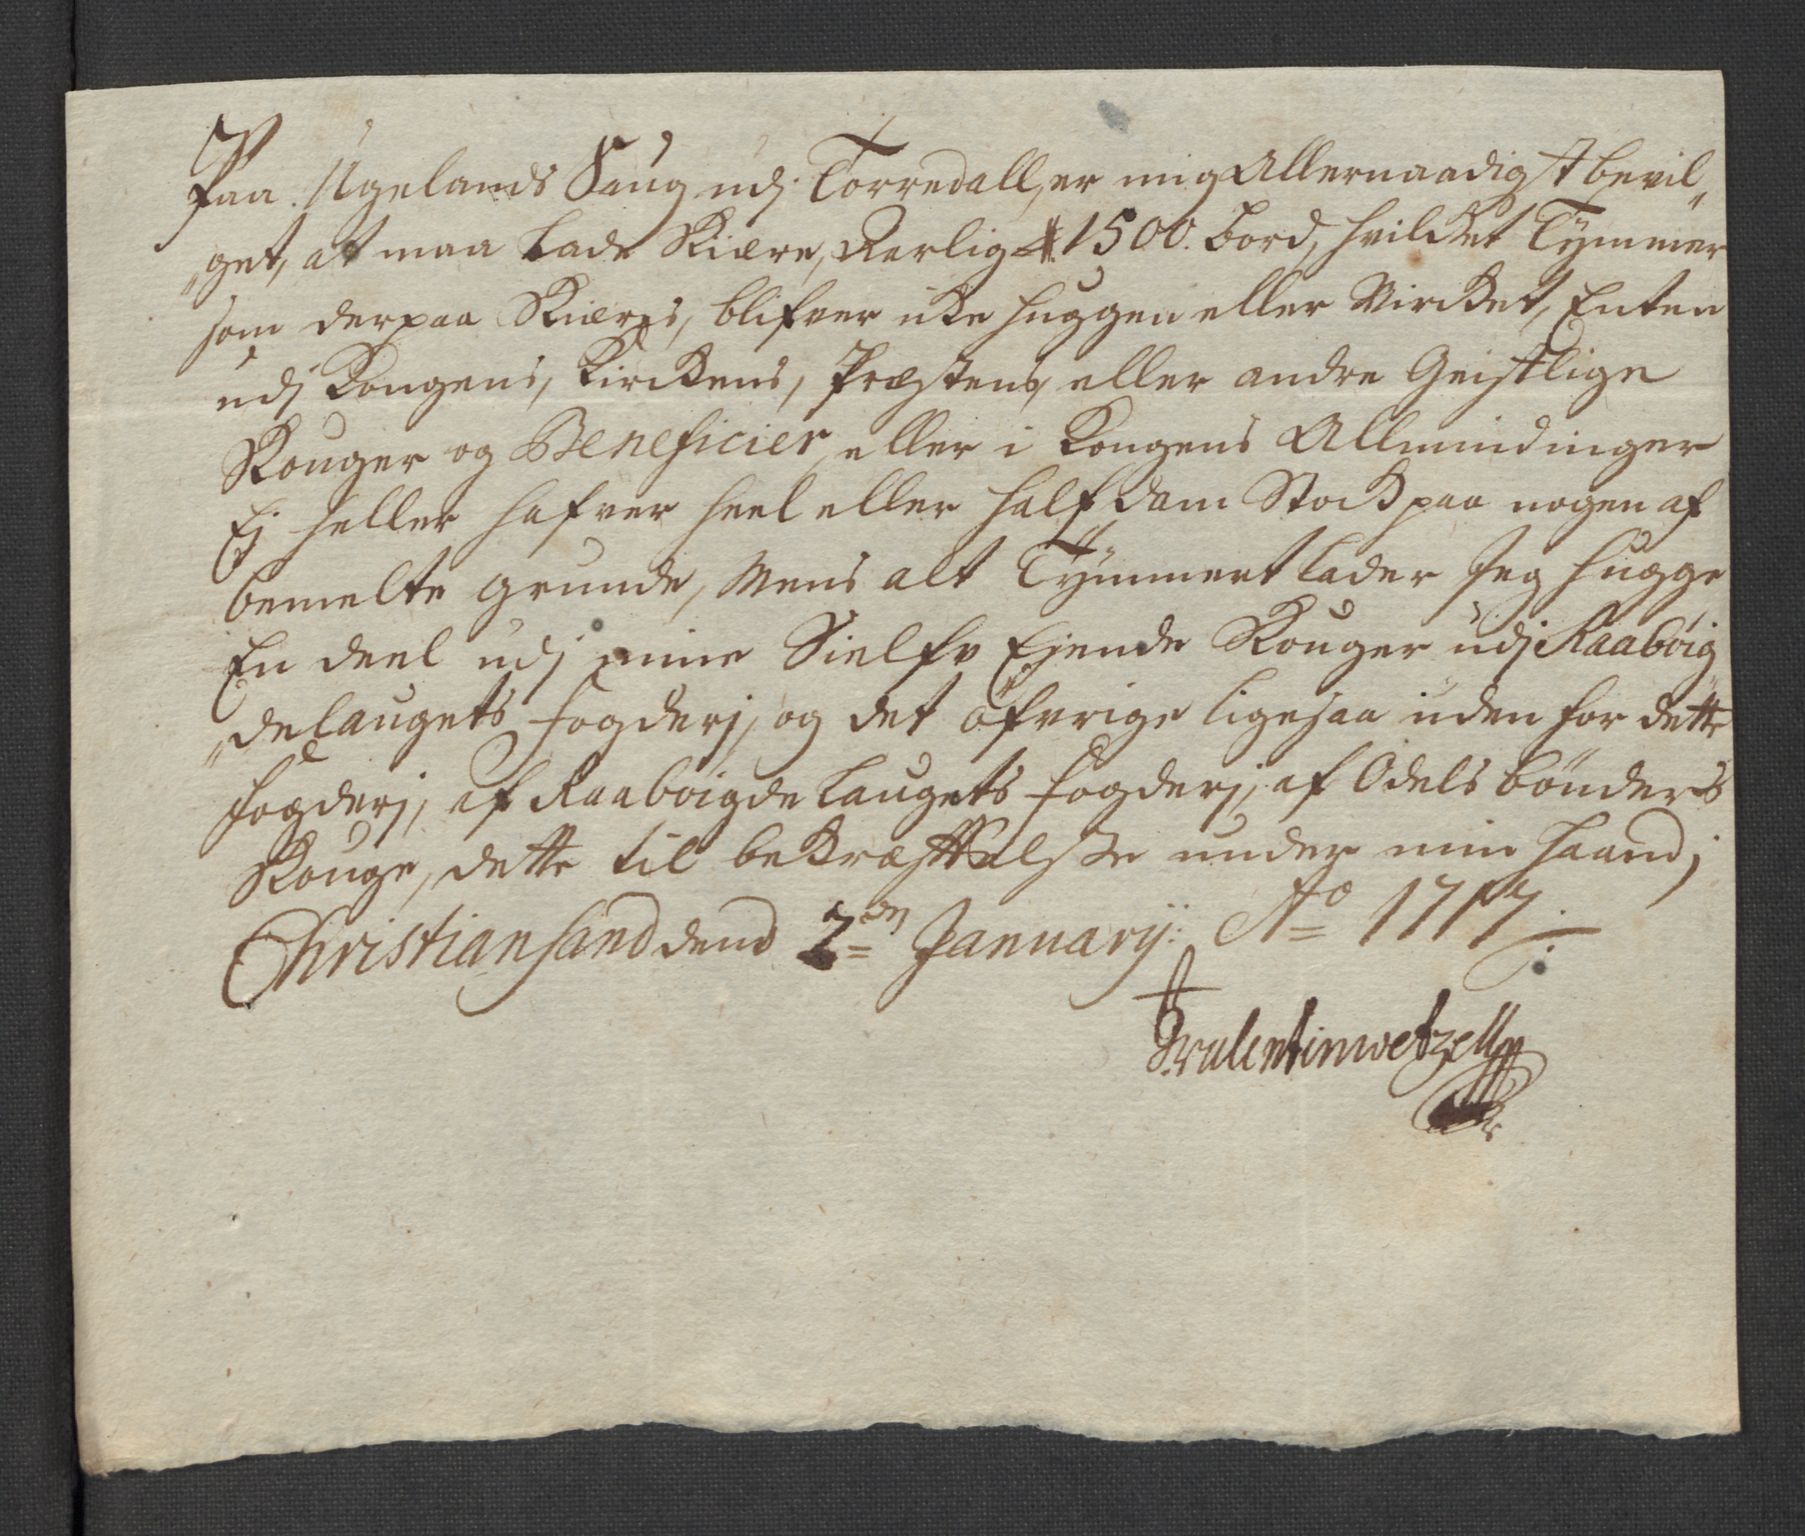 Paa Ugelands Saug udj Torredall, er mig Allernaadigst bevil„
„get, at maa lade Skiære, Aarlig 1500. bord, hvilcket Tÿmmer
som derpaa Skiæres, blifver icke huggen eller Vircket, Enten
udj Kongens, Kirckens, Præstens, eller andre Geistlige
Skouger og Beneficier, eller i Kongens Allmindinger
Ej heller hafver heel eller half dam Stock paa nogen af
bemelte grunde, Mens alt Tÿmmert lader Jeg hugge
En deel udj mine Sielfv Ejende Skouger udj Raabøig
„delaugets fogderj, og det øfvrige ligesaa uden for dette
fogderj, af Raabøigdelaugets fogderj, af Odels bønders
Skouge, dette til bekræftelse under min haand,
Christiansand dend 2den Januarÿ: Ao 1717.
Valentin Wetzell